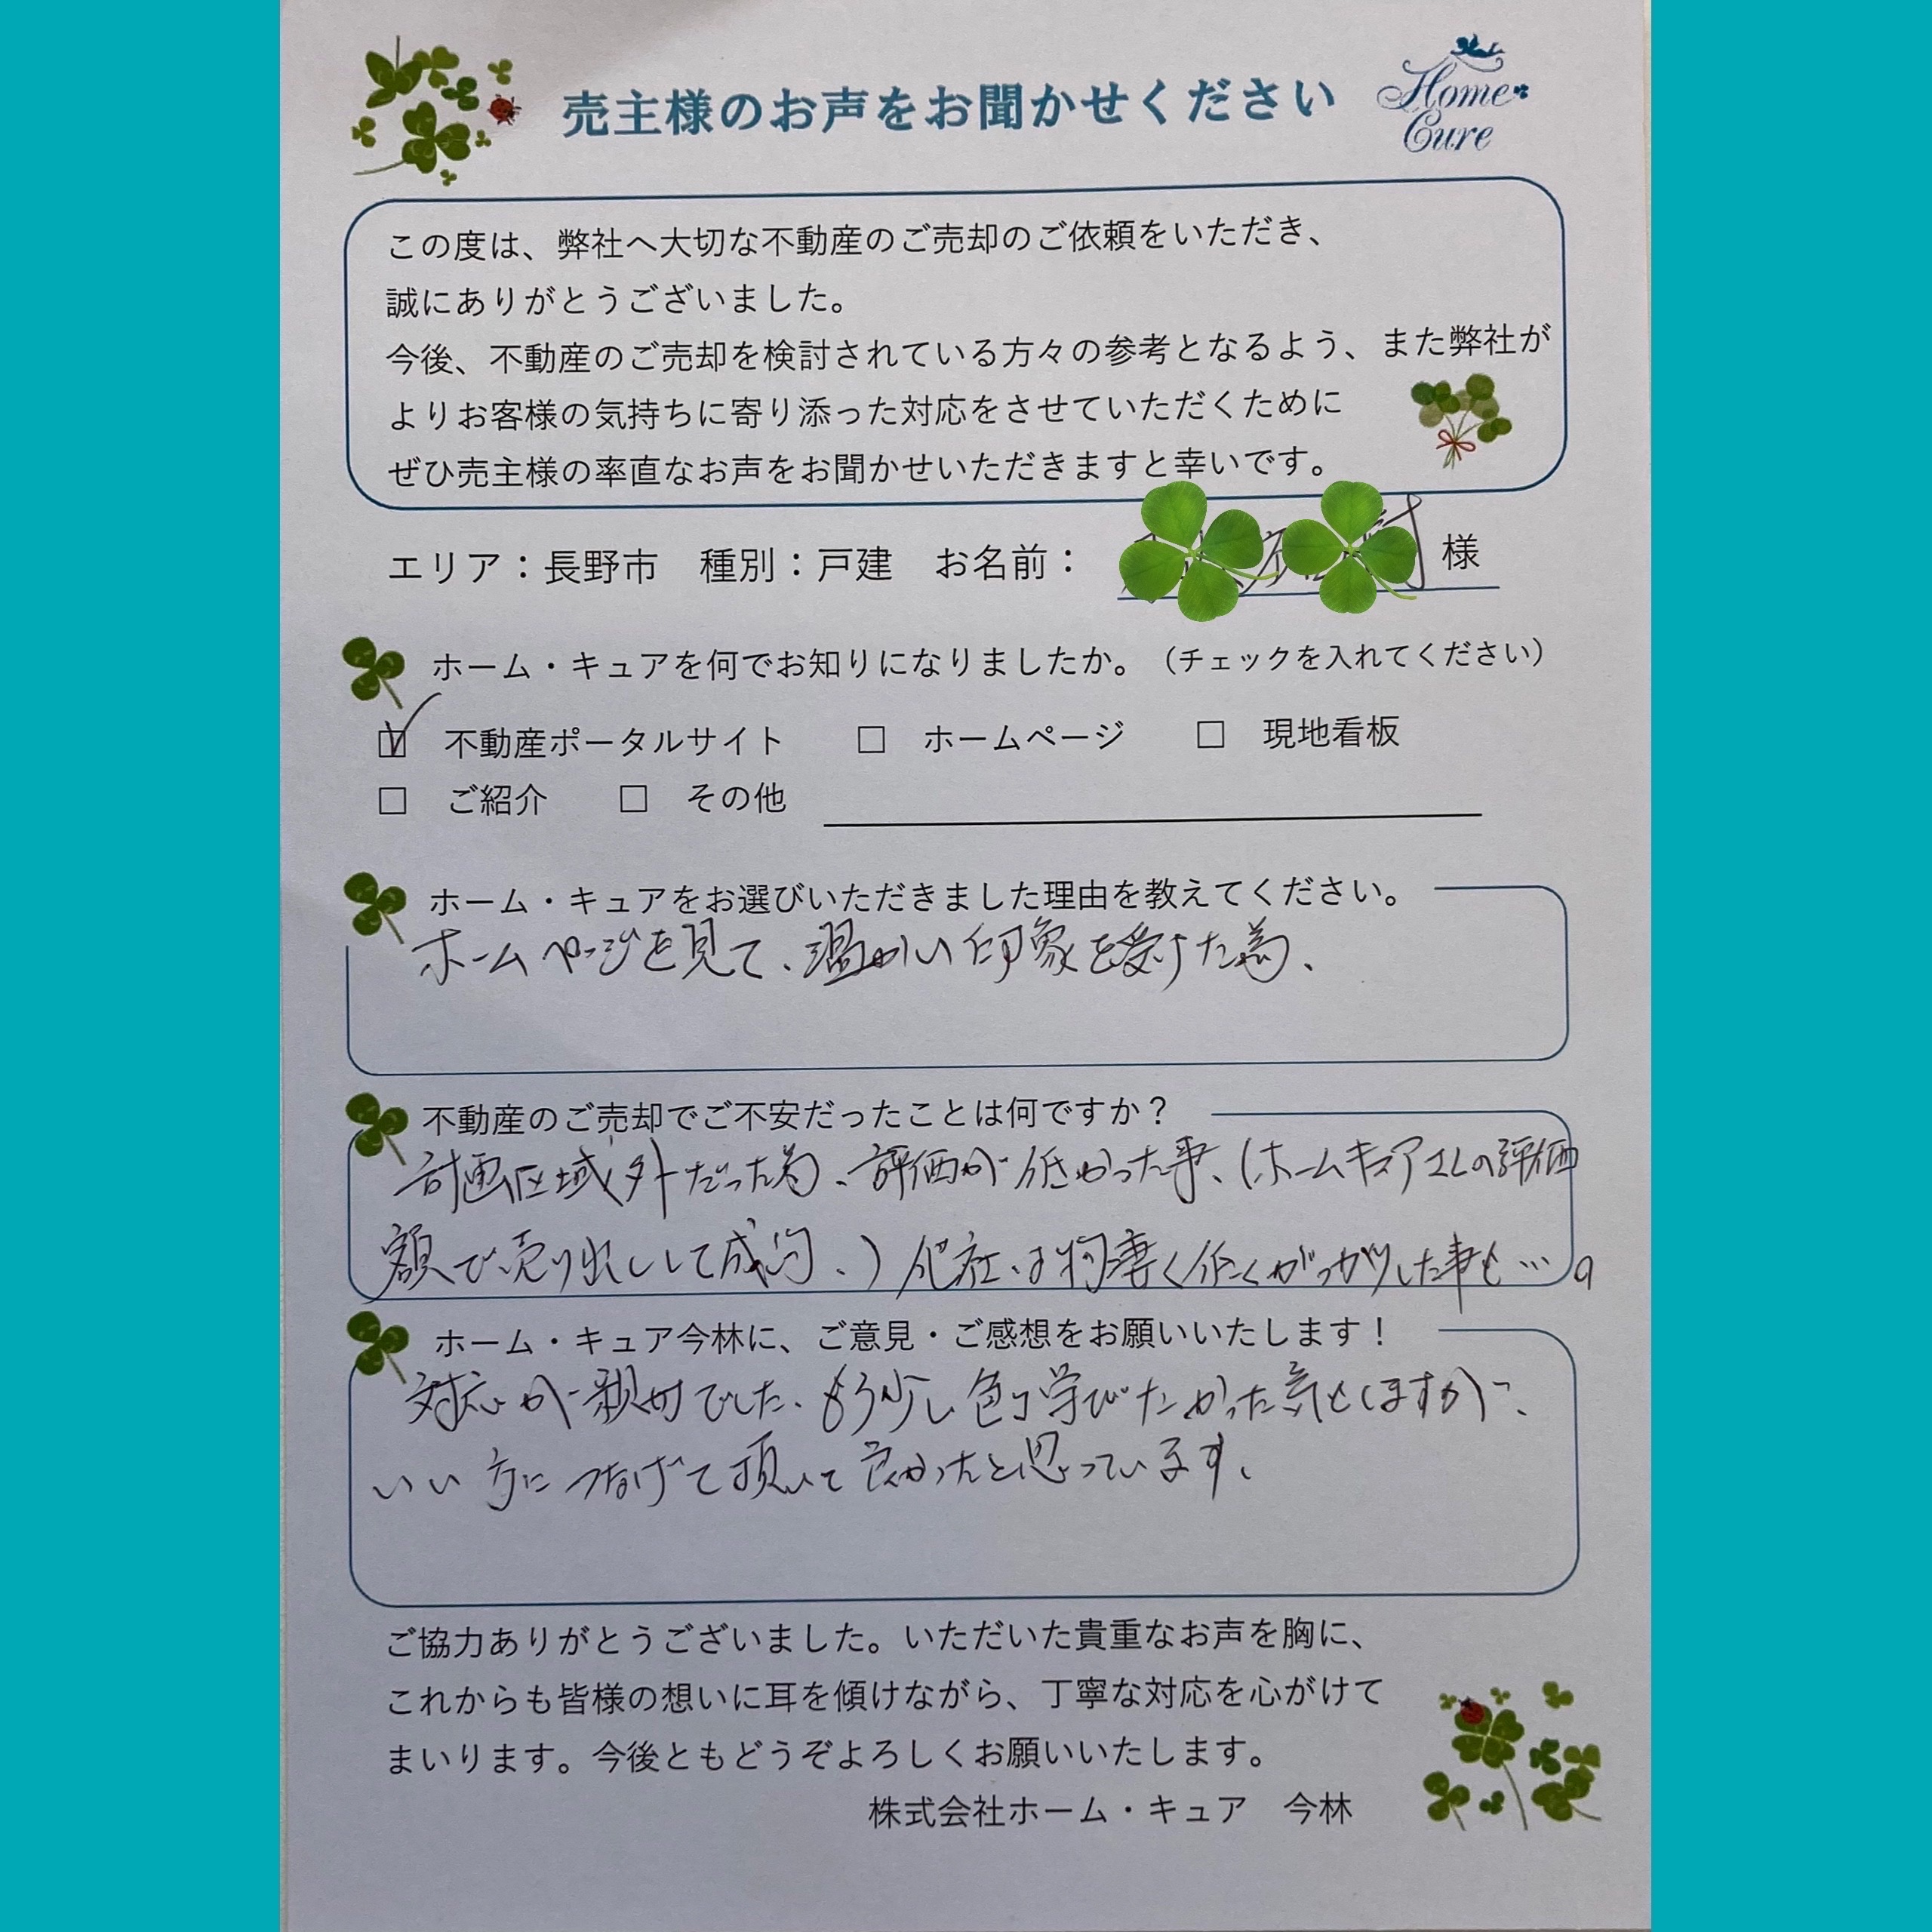 売主様のお声をお聞かせください
Home Cure
この度は、弊社へ大切な不動産のご売却のご依頼をいただき、
誠にありがとうございました。
今後、不動産のご売却を検討されている方々の参考となるよう、また弊社が
よりお客様の気持ちに寄り添った対応をさせていただくために
ぜひ売主様の率直なお声をお聞かせいただきますと幸いです。
エリア：長野市 種別：戸建 お名前： 様
ホーム・キュアを何でお知りになりましたか。（チェックを入れてください）
☑ 不動産ポータルサイト □ ホームページ □ 現地看板
□ ご紹介 □ その他
ホーム・キュアをお選びいただきました理由を教えてください。
ホームページを見て、温かい印象を受けた為、
不動産のご売却でご不安だったことは何ですか？
計画区域外だった為、評価が低かった事、(ホームキュアさんの評価
額で売り出しして成約、) 他社は物凄く低くがっかりした事も…。
ホーム・キュア今林に、ご意見・ご感想をお願いいたします！
対応が親切でした、もう少し色々学びたかった気もしますが、
いい方につなげて頂いて良かったと思っています。
ご協力ありがとうございました。いただいた貴重なお声を胸に、
これからも皆様の想いに耳を傾けながら、丁寧な対応を心がけて
まいります。今後ともどうぞよろしくお願いいたします。
株式会社ホーム・キュア 今林